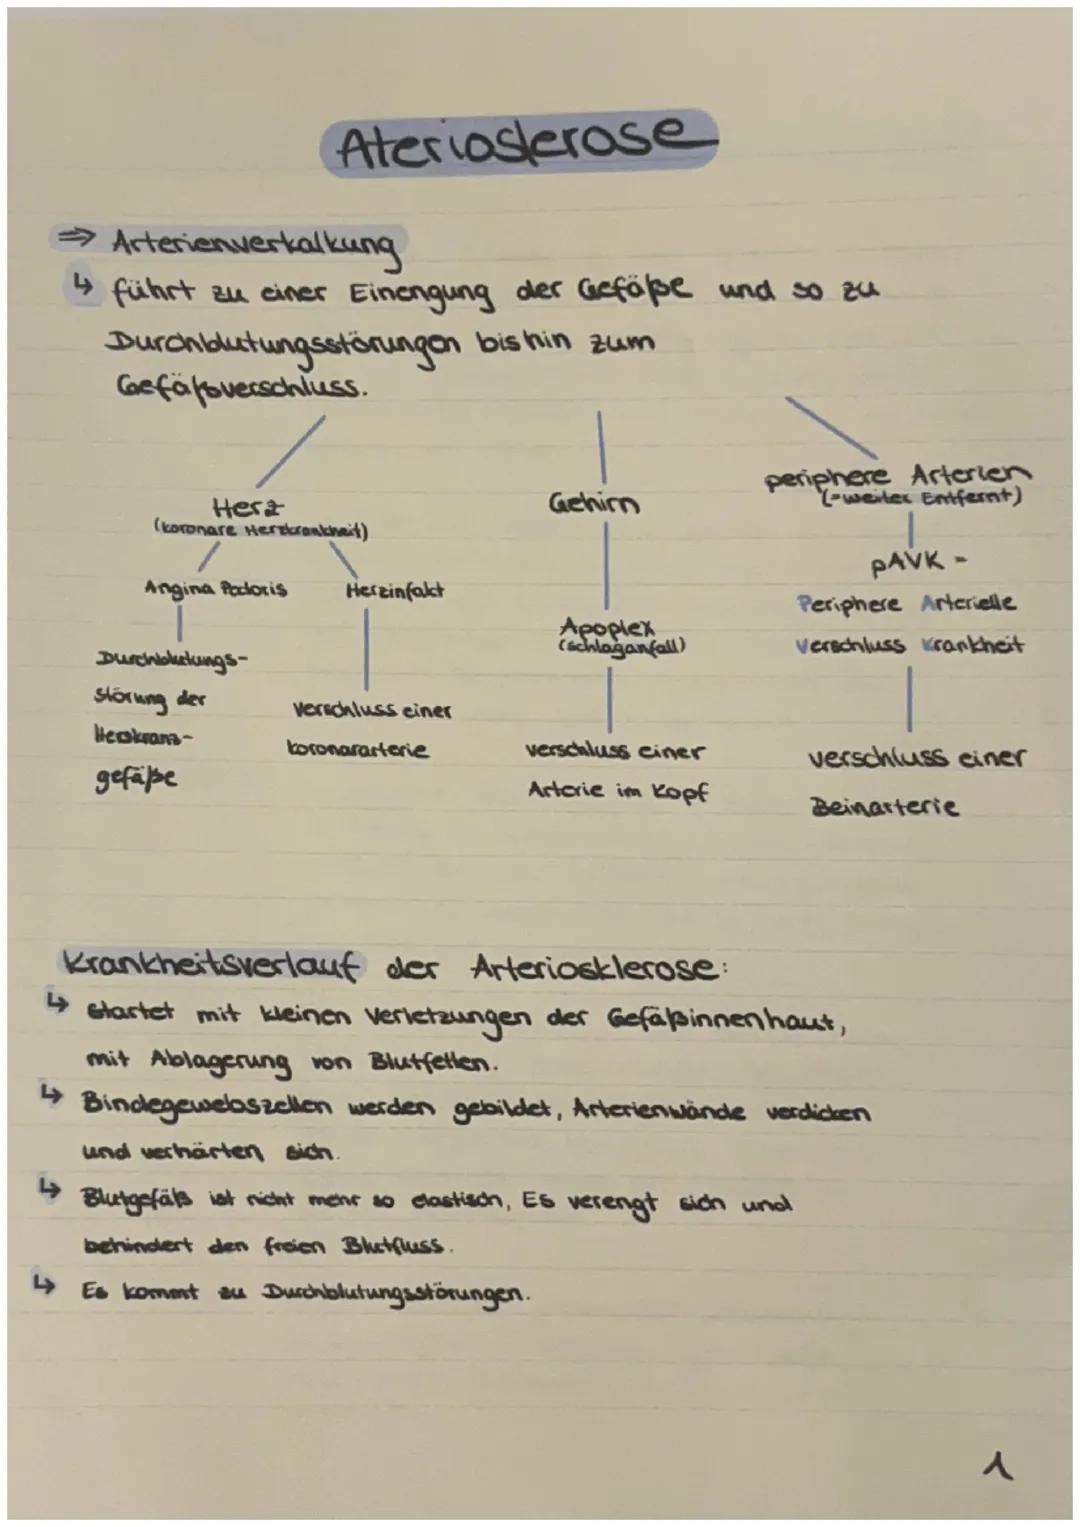 Aterioslerose
⇒ Arterienverkalkung
↳ führt zu einer Einengung der Gefäße und so zu
Durchblutungsstörungen bis hin zum
Gefäßverschluss.
Herz
(koronare Herzkrankheit)
Angina Pectoris
Durchblutungs-
störung der
Herzkranz-
gefäße
Herzinfakt
Verschluss einer
Koronararterie
Gehirn
Apoplex
(schlaganfall)
verschluss einer
Arterie im Kopf
periphere Arterien
(=weiter Entfernt)
pAVK -
Periphere Arterielle
Verschluss Krankheit
verschluss einer
Beinarterie
Krankheitsverlauf der Arteriosklerose:
↳ startet mit kleinen Verletzungen der Gefäßinnenhaut,
mit Ablagerung von Blutfetten.
↳ Bindegewebszellen werden gebildet, Arterienwände verdicken
und verhärten sich.
↳ Blutgefäß ist nicht mehr so elastisch, Es verengt sich und
behindert den freien Blutfluss.
↳ Es kommt zu Durchblutungsstörungen.
1